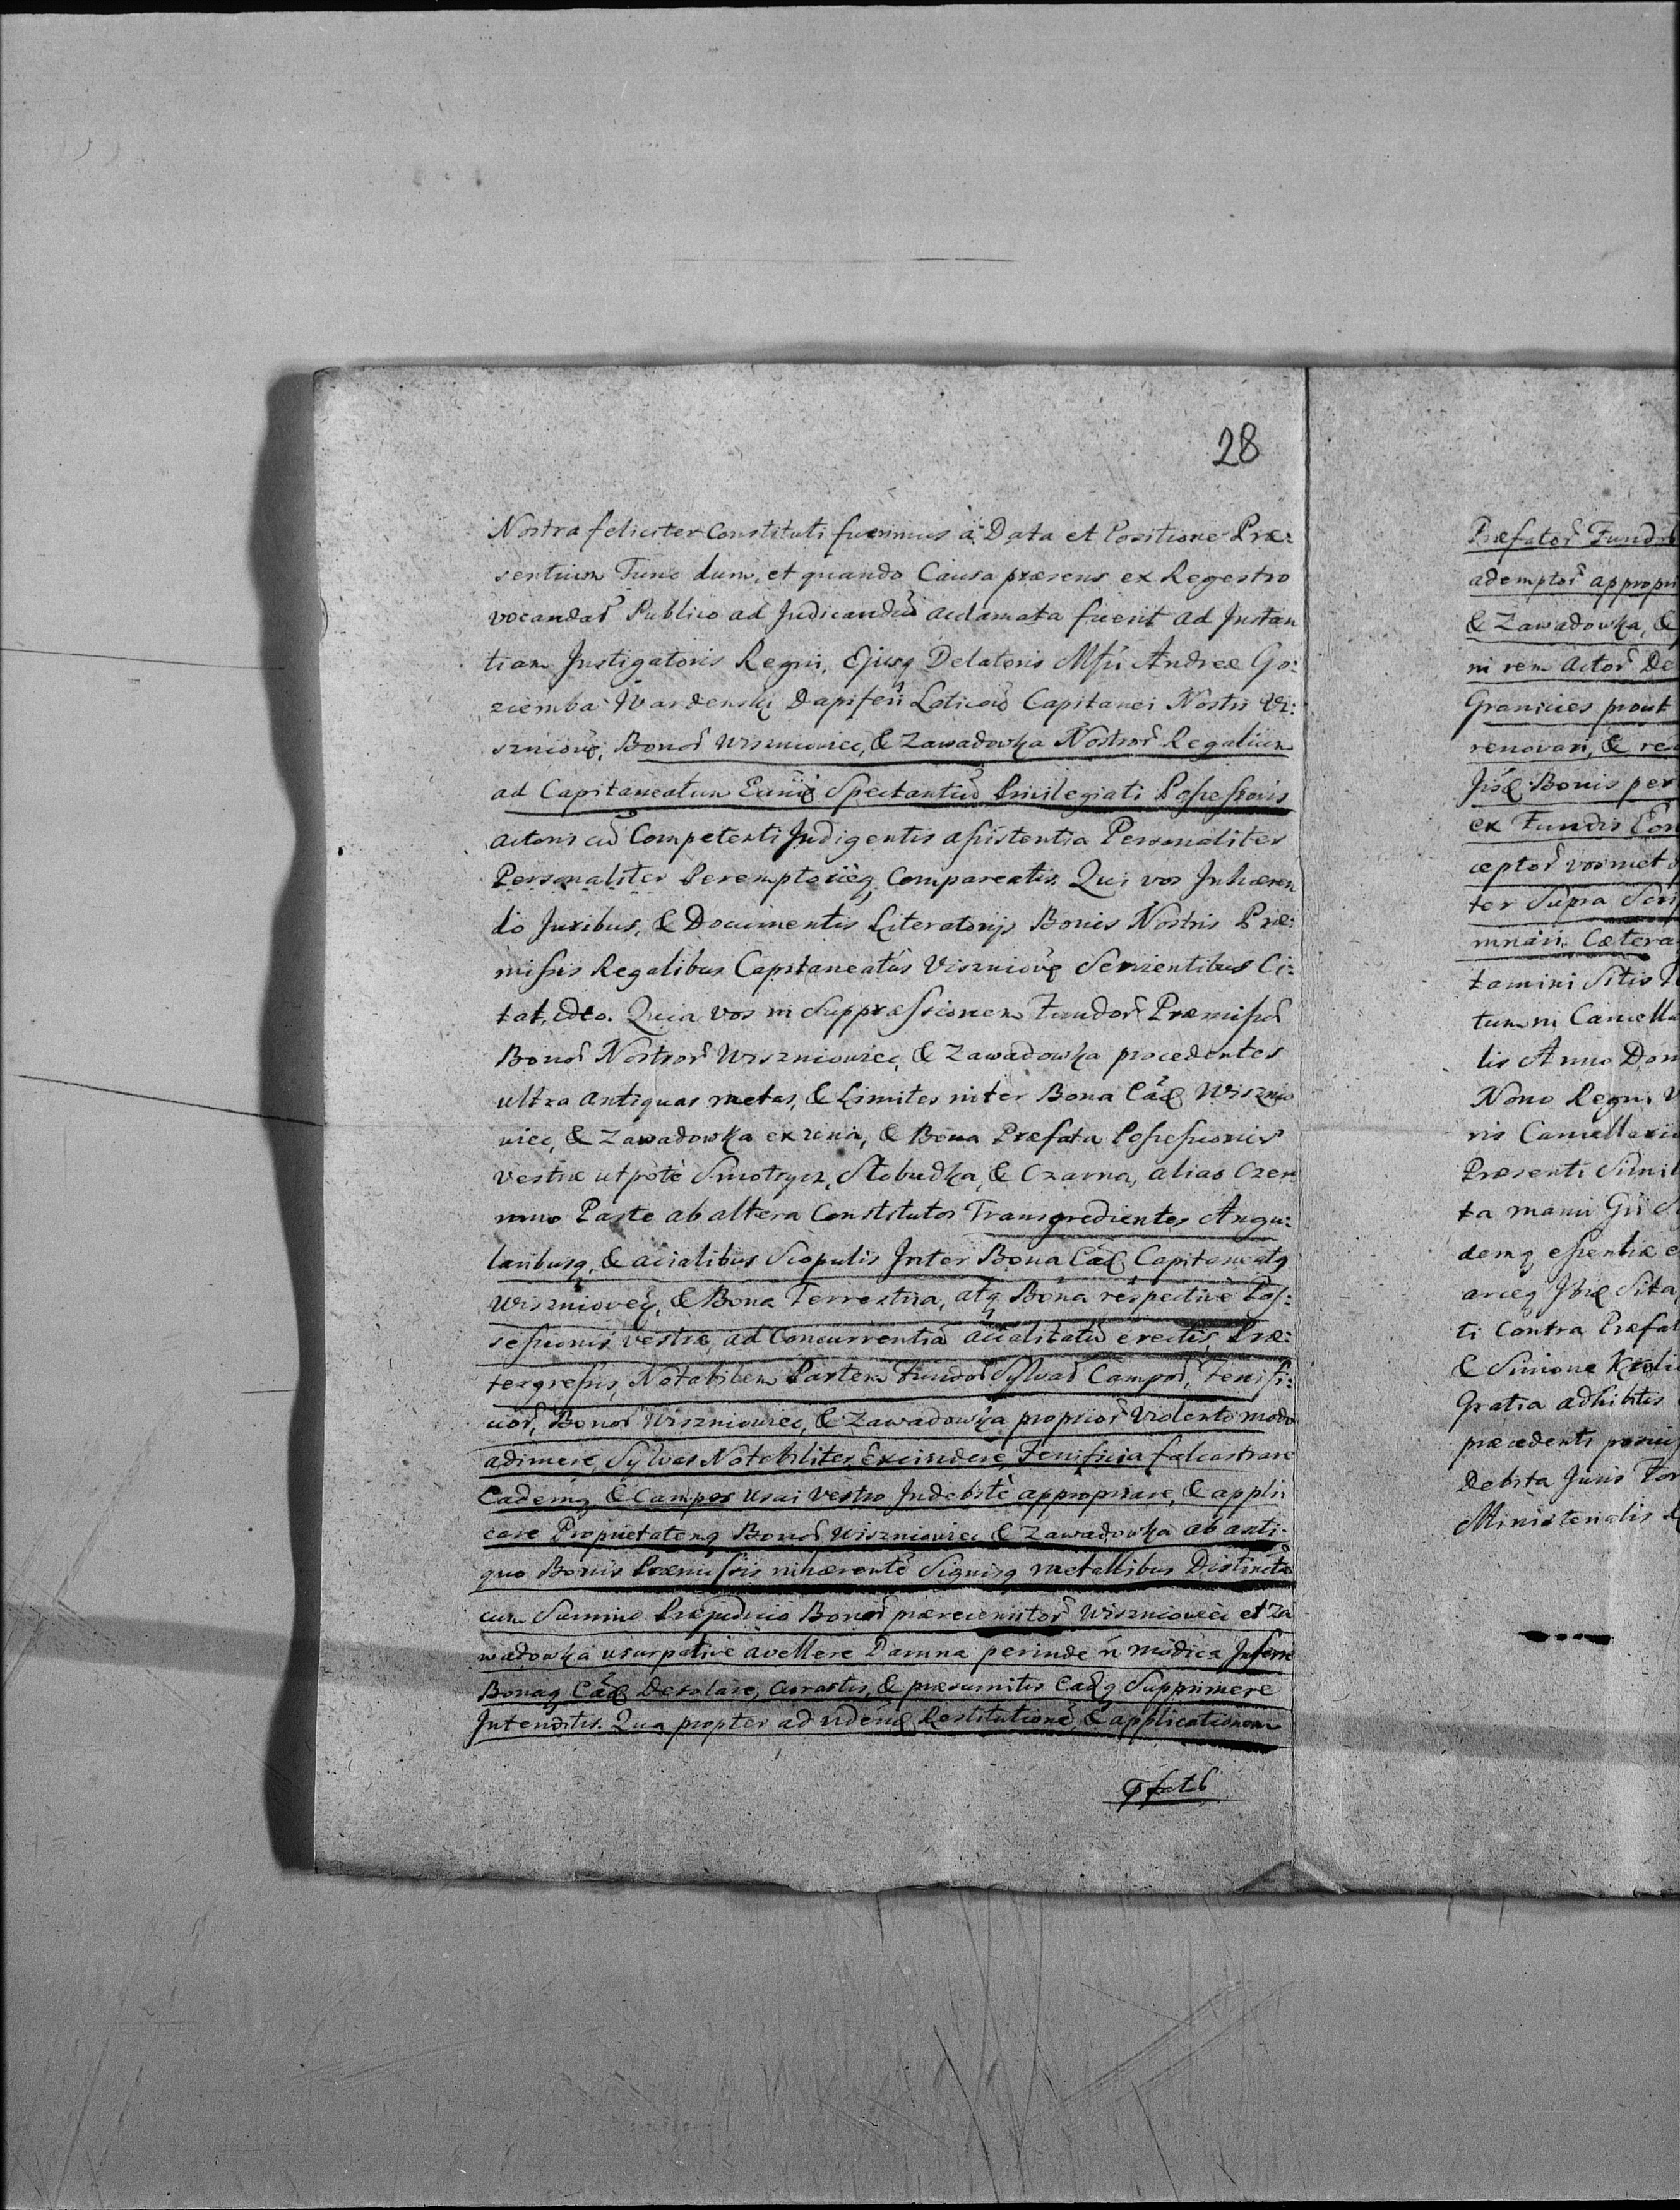 28
Nostra feliciter Constituti fuerimus à Data et Positione Præ:
sentium Tunc dum, et quando Causa præsens ex Regestro
vocandar̃ Publico ad Judicandũ acclamata fuerit ad Instan
tiam Instigatoris Regni, Ejusq Delatoris Andreæ Go:
ziemba Dapiferi Capitanei Nostri Vi:
szniov̄, Bonor̃ Wiszniowiec, & Zawadowka Nostror̃ Regalium
ad Capitaneatum Spectantiũ Privilegiati Possessoris
actoris cũ Competenti Indigentis assistentia Personaliter
Personaliter Peremptorièq Compareatis Qui vos Inhæren
do Juribus, & Documentis Literatorijs Bonis Nostris Præ:
missis Regalibus Capitaneatûs Viszniov̄ Servientibus Ci:
tat, ideo. Quia vos in Suppressionem Fundor̃ Præmissor̃
Bonor̃ Nostror̃ Wiszniowiec, & Zawadowka procedentes
ultra antiquas metas, & Limites inter Bona Wisznio
wiec, & Zawadowka ex una, & Bona Præfata Possessionis
vestræ utpotè Smotrycz, Słobudka, & Czarna, alias Czer
Parte ab altera Constitutos Transgredientes Angu:
laribusq, & acialibus Scopulis Inter Bona Capitaneatq
Wiszniov̄, & Bona Terrestria, atq Bona respectivè Pos:
sessionis vestræ, ad Concurrentiã acialitatũ erectis, Præ:
tergressis, Notabilem Partem Fundor̃ Sylvar̃ Campor̃, Fenisi:
cior̃, Bonor̃ Wiszniowiec, & Zawadowka proprior̃ Violento modo
adimere, Sylvas Notabiliter Excindere, Fenisicia falcastrare
Eademq & Campos usui vestro Indebitè appropriare, & appli
care Proprietatemq Bonor̃ Wiszniowiec & Zawadowka ab anti:
quo Bonis Præmissis inhærentẽ Signisq metallibus Distinctã
cum Summo Præjudicio Bonor̃ præreceusitor̃ Wiszniowiec et Za
wadowka usurpativè avellere Damna perinde ñ modica Inferre
Bonaq Desolare, curastis, & præsumitis Supprimere
Intenditis. Qua propter ad Restitutionẽ, & applicationem
Præfator̃
ademptor̃
& Zawadowka, &
in rem actor̃ De
Granicies prout
renovari, &
Bonis per
ex Fundis
ceptor̃
ter Supra
mnari. Cætera
tamini Sitis
tum in Cancella
lis Anno Dom
Nono Regni
ris Cancellaria
Præsenti
ta manu
demq
Sita
ti Contra Præfat
& Simone
Gratia adhibitis
præcedenti
Debita Juris
Ministerialis